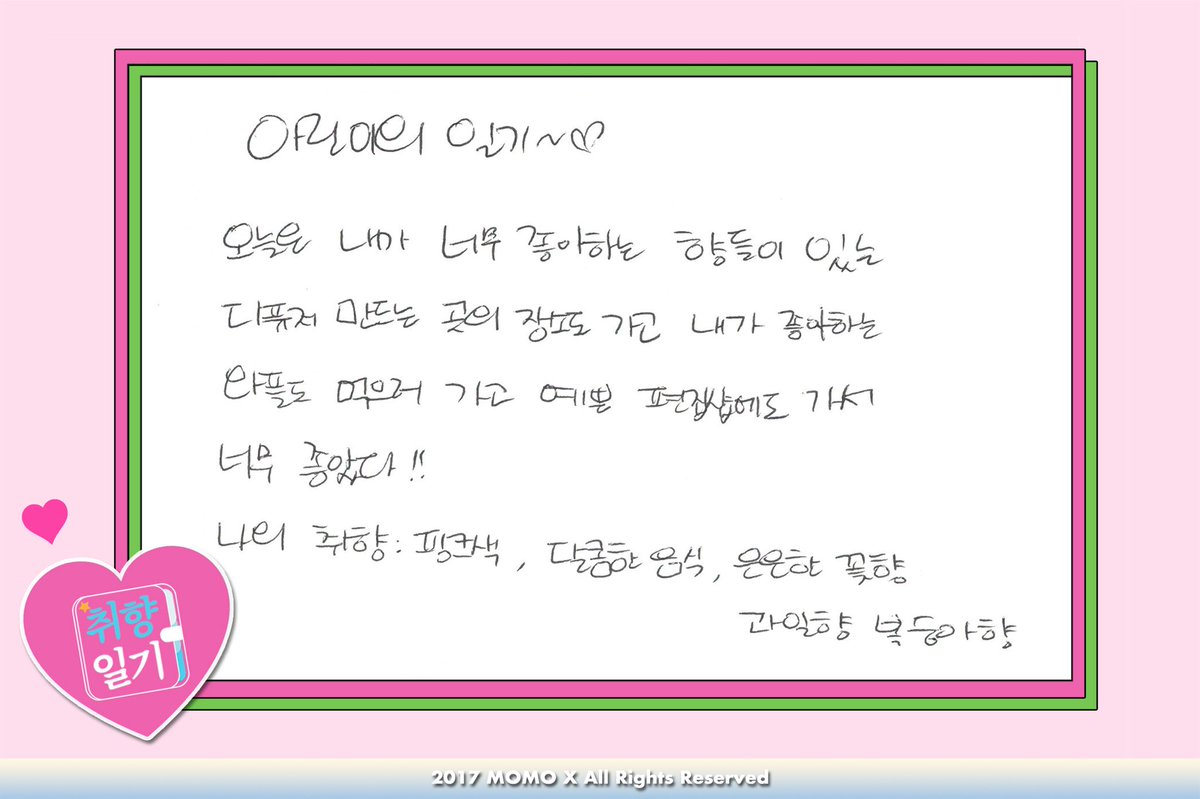 아린이의 일기~♡
오늘은 내가 너무 좋아하는 향들이 있는
디퓨저 만드는 곳의 장소도 가고 내가 좋아하는
와플도 먹으러 가고 예쁜 편집샵에도 가서
너무 좋았다!!
나의 취향: 핑크색, 달콤한 음식, 은은한 꽃향
과일향 복숭아향
취향
일기
2017 MOMO X All Rights Reserved